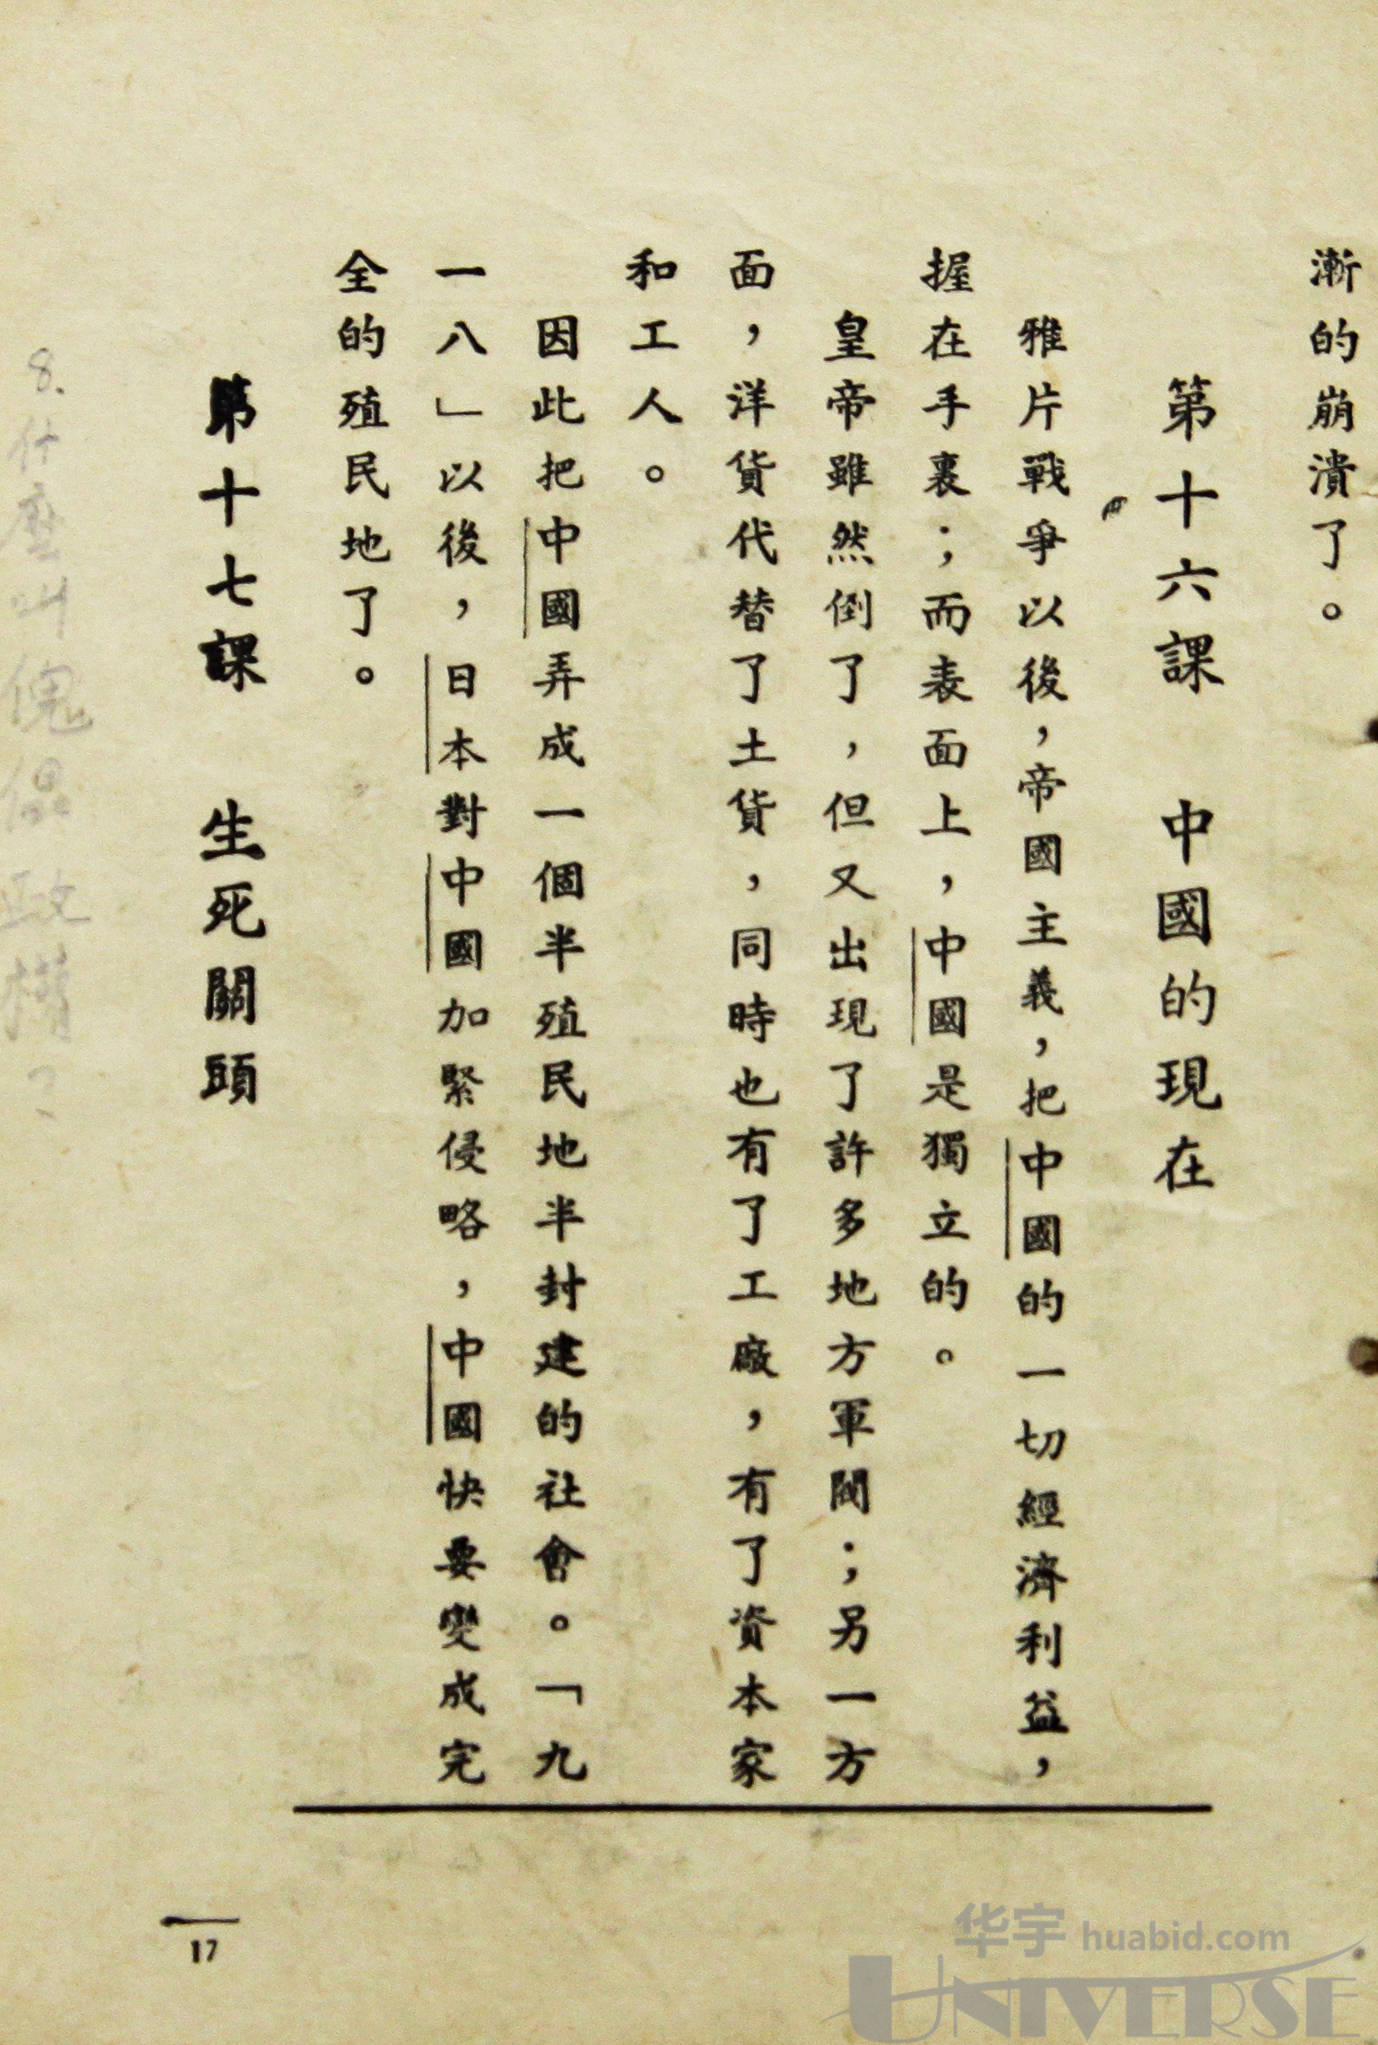 漸的崩潰了。
第十六課　中國的現在
雅片戰爭以後，帝國主義，把中國的一切經濟利益，
握在手裏；而表面上，中國是獨立的。
皇帝雖然倒了，但又出現了許多地方軍閥；另一方
面，洋貨代替了土貨，同時也有了工廠，有了資本家
和工人。
因此把中國弄成一個半殖民地半封建的社會。「九
一八」以後，日本對中國加緊侵略，中國快要變成完
全的殖民地了。
第十七課　生死關頭
8.什麼叫傀儡政權？
17
华宇 huabid.com
UNIVERSE